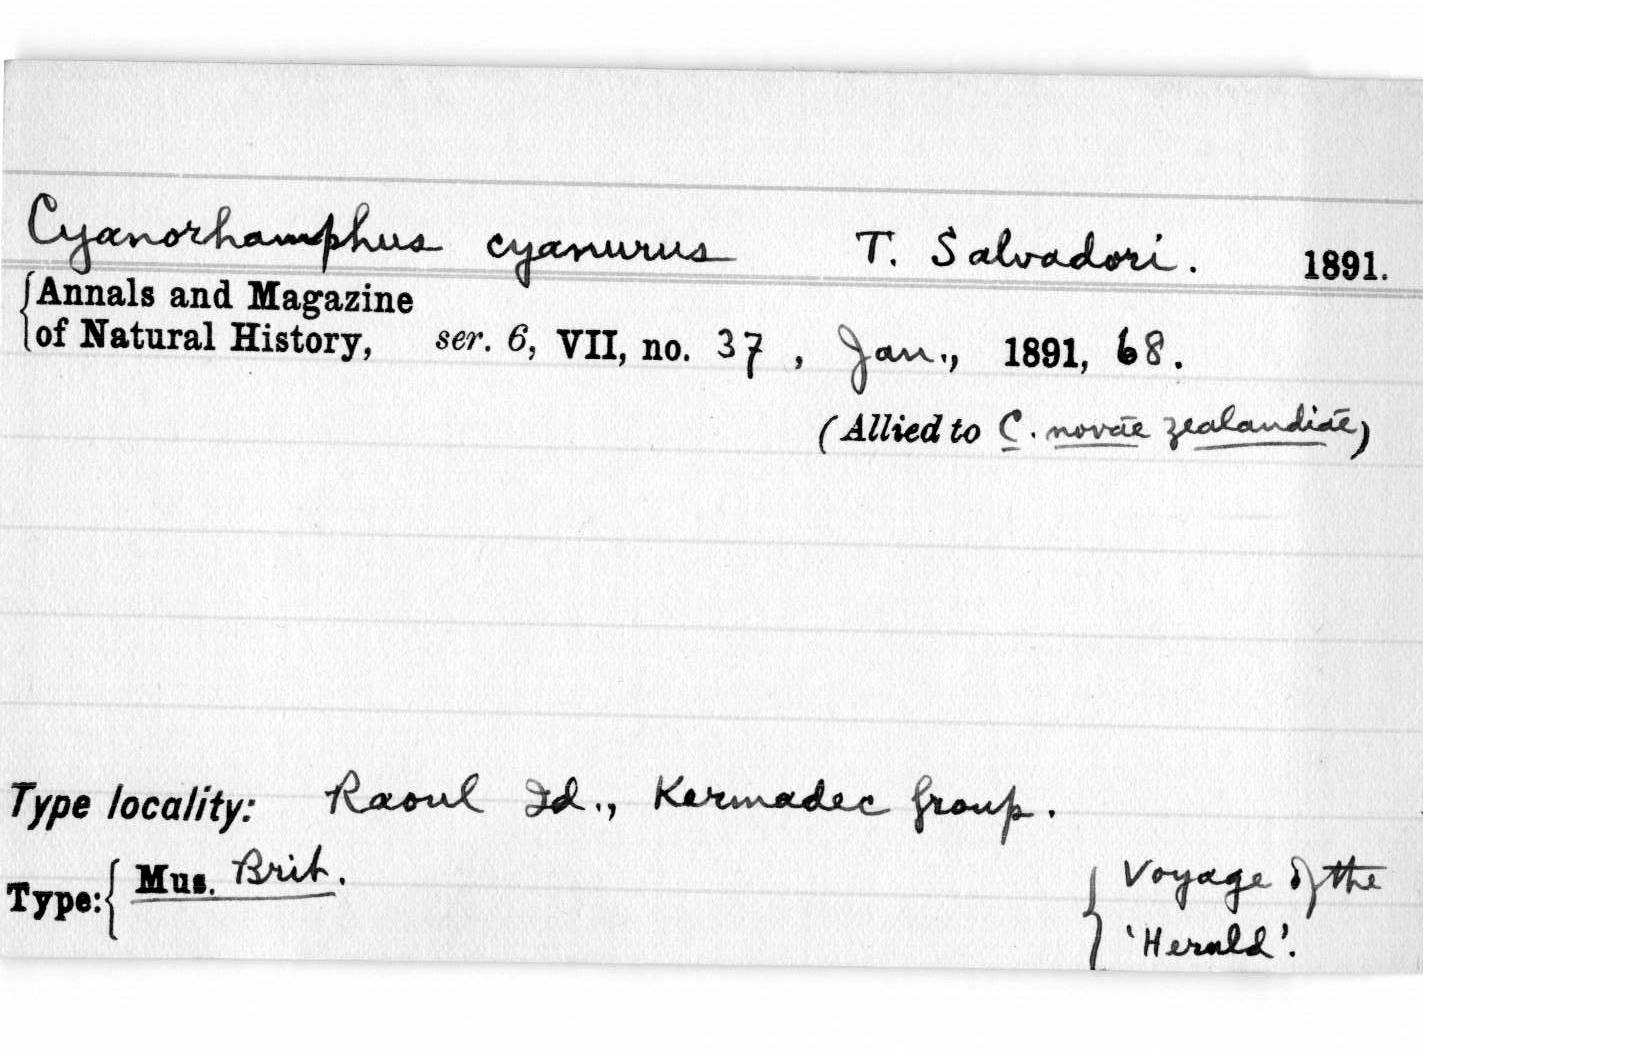 Cyanorhamphus cyanurus T. Salvadori. 1891.
Annals and Magazine
of Natural History, ser. 6, VII, no. 37, Jan., 1891, 68.
(Allied to C. novae zealandiae)
Type locality: Raoul Id., Kermadec Group.
Type: Mus. Brit.
Voyage of the
'Herald'.